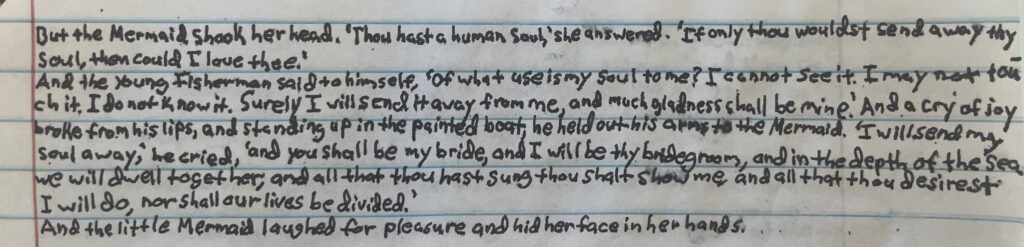 But the Mermaid shook her head. 'Thou hast a human soul,' she answered. 'If only thou wouldst send away thy
soul, then could I love thee.'
And the young Fisherman said to himself, 'Of what use is my soul to me? I cannot see it. I may not tou
ch it. I do not know it. Surely I will send it away from me, and much gladness shall be mine.' And a cry of joy
broke from his lips, and standing up in the painted boat, he held out his arms to the Mermaid. 'I will send my
soul away,' he cried, 'and you shall be my bride, and I will be thy bridegroom, and in the depth of the sea
we will dwell together, and all that thou hast sung thou shalt show me, and all that thou desirest
I will do, nor shall our lives be divided.'
And the little Mermaid laughed for pleasure and hid her face in her hands.